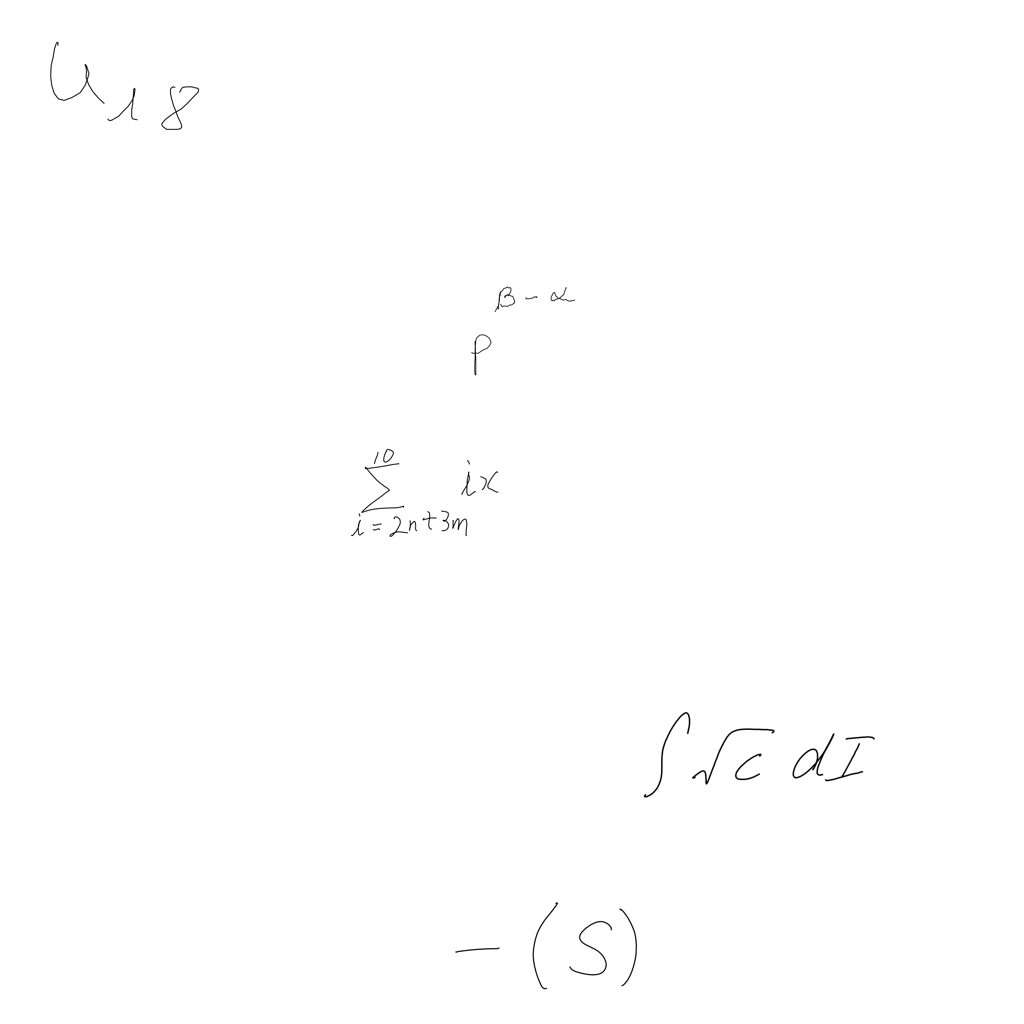 u_{18}
p^{β-α}
\sum_{i=2n+3m}^{10} ix
\int \sqrt{c} dI
-(S)